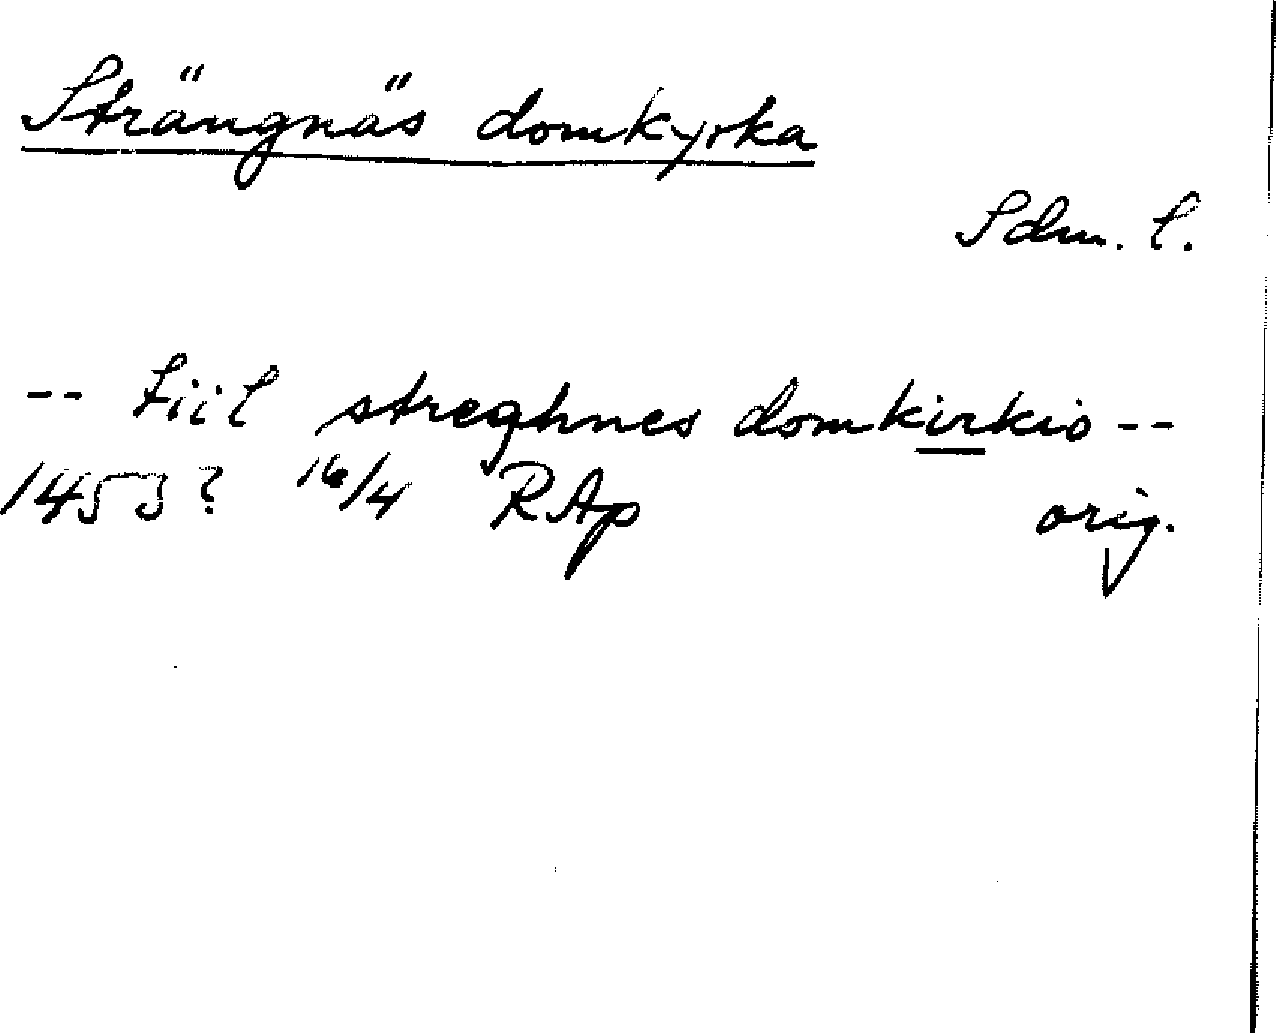 Strängnäs domkyrka
Sdm. l.
-- tiil streghnes domkirkio --
1453? 16/4 RAp orig.